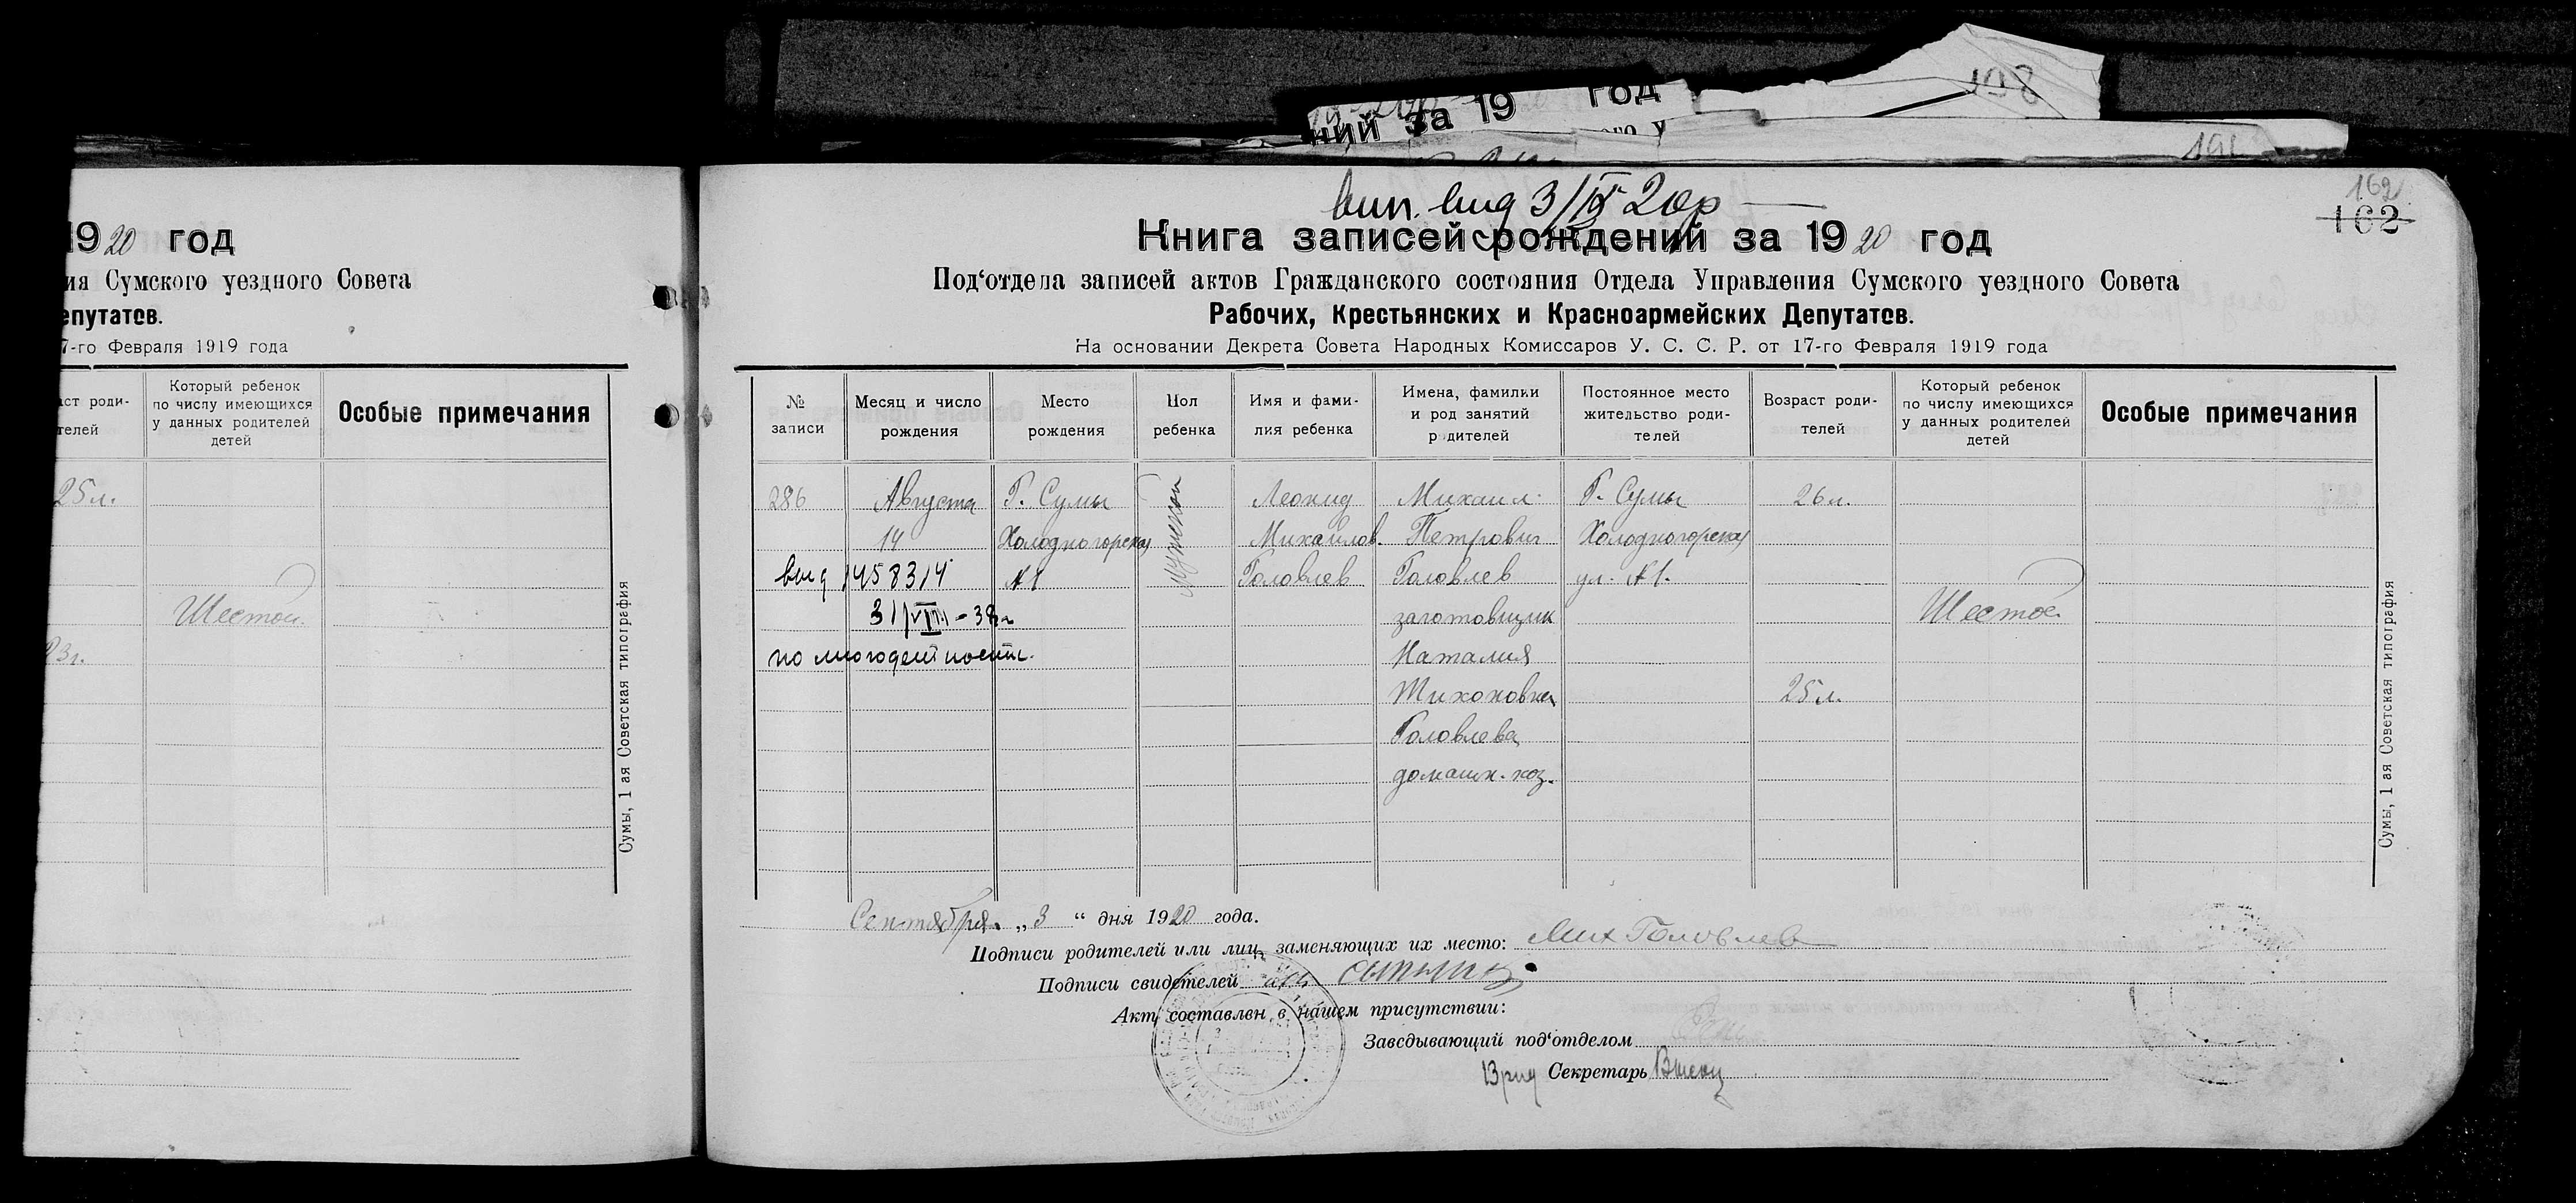 198
ний за 19 год
191
1920 год
ия Сумского уездного Совета
епутатов.
7-го Февраля 1919 года
аст роди-
телей
Который ребенок
по числу имеющихся
у данных родителей
детей
Особые примечания
25 л.
Шестой
23 г.
Сумы, 1 ая Советская типография
вид 3/IX 20 р
162
162
Книга записей рождений за 1920 год
Под‘отдела записей актов Гражданского состояния Отдела Управления Сумского уездного Совета
Рабочих, Крестьянских и Красноармейских Депутатов.
На основании Декрета Совета Народных Комиссаров У. С. С. Р. от 17-го Февраля 1919 года
№
записи
Месяц и число
рождения
Место
рождения
Пол
ребенка
Имя и фами-
лия ребенка
Имена, фамилии
и род занятий
родителей
Постоянное место
жительство роди-
телей
Возраст роди-
телей
Который ребенок
по числу имеющихся
у данных родителей
детей
Особые примечания
286
Августа
14
Г. Сумы
Холодногорская
№ 1
мужской
Леонид
Михайлов.
Головлев
Михаил
Петрович
Головлев
заготовщик
Наталия
Тихоновна
Головлева
домашн. хоз.
Г. Сумы
Холодногорская
ул. № 1.
26 л.
25 л.
Шестой
вид 1458314
31/VIII-38 г
по многодетности.
Сумы, 1 ая Советская типография
Сентября „3“ дня 1920 года.
Подписи родителей или лиц, заменяющих их место: Мих Головлев
Подписи свидетелей
Акт составлен в нашем присутствии:
Заведывающий под‘отделом
Врид Секретарь